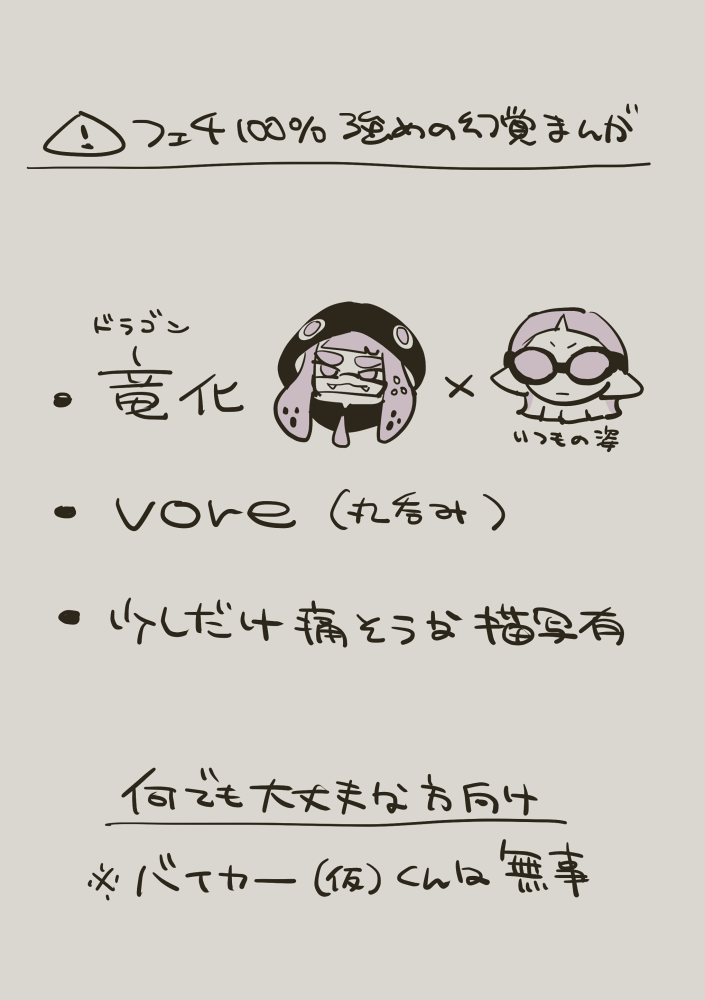 ⚠フェチ100%強めの幻覚まんが
ドラゴン
・竜化
×
いつもの姿
・vore(丸呑み)
・少しだけ痛そうな描写有
何でも大丈夫な方向け
※バイカー(仮)くんは無事